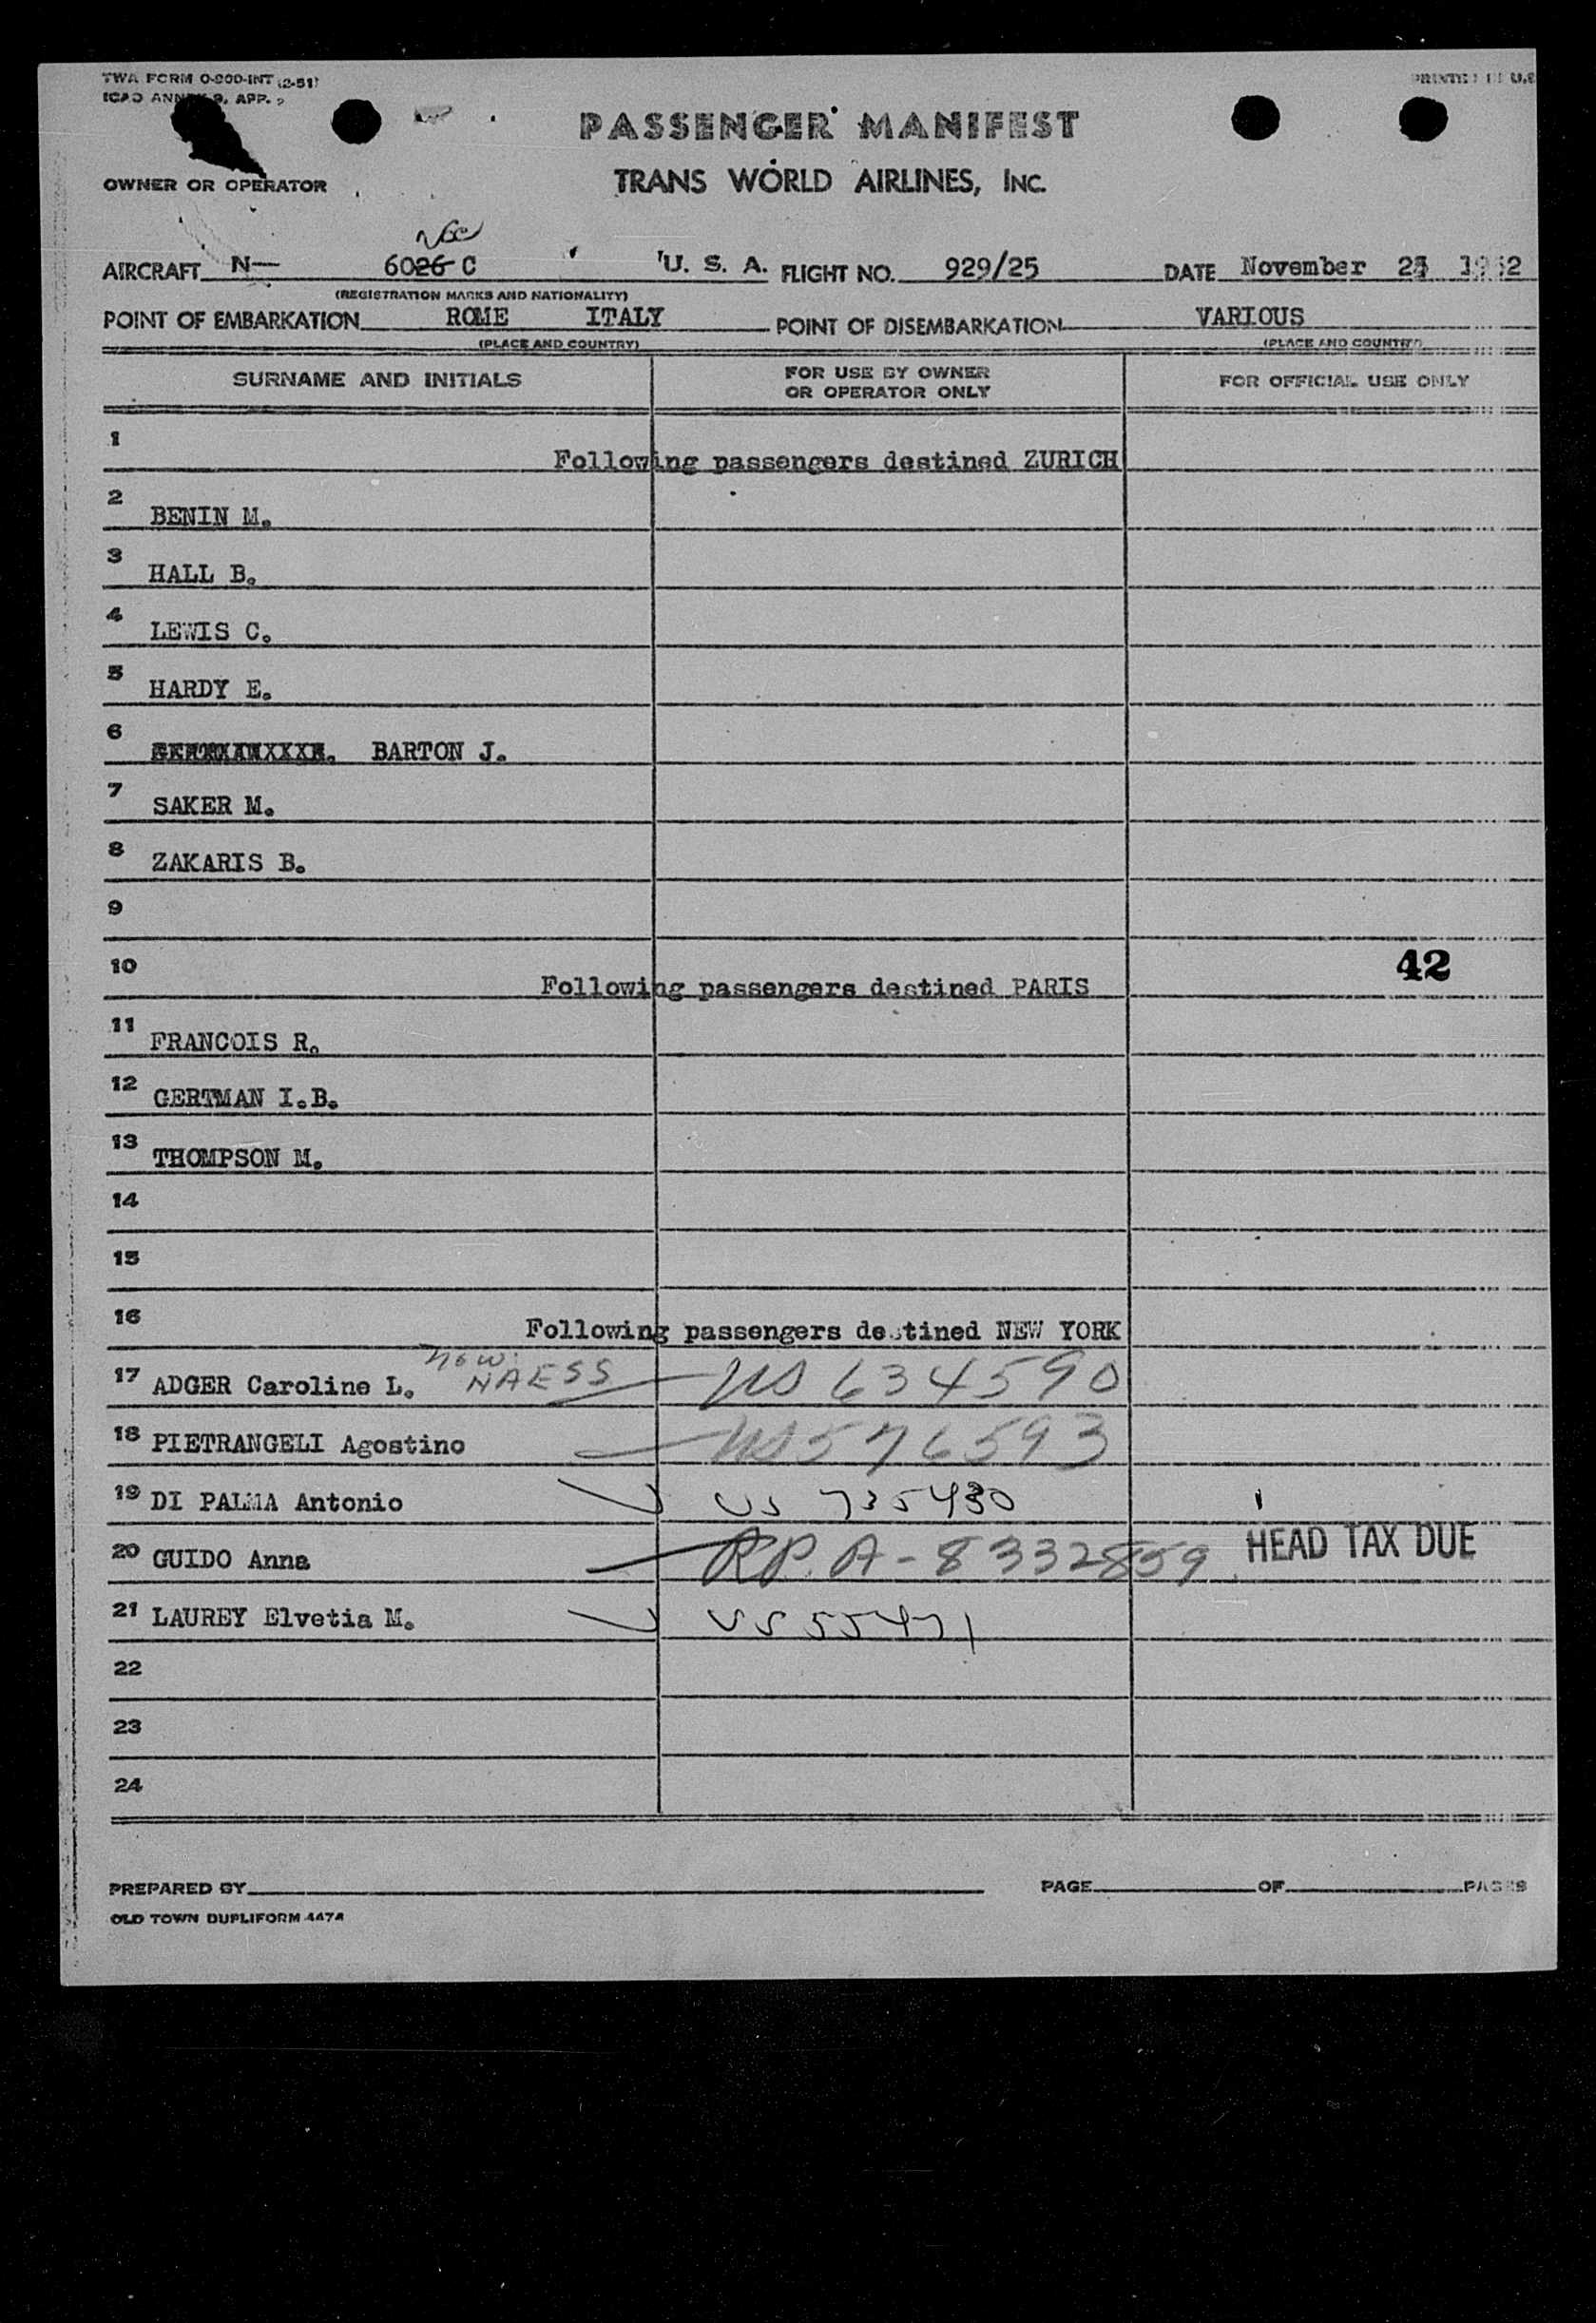 TWA FORM O-900-INT (2-51)
PRINTED IN U.S
ICAO ANNEX 9, APP.
PASSENGER MANIFEST
OWNER OR OPERATOR
TRANS WORLD AIRLINES, INC.
AIRCRAFT N— 6026 C U. S. A. FLIGHT NO. 929/25 DATE November 1952
(REGISTRATION MARKS AND NATIONALITY)
POINT OF EMBARKATION ROME ITALY POINT OF DISEMBARKATION VARIOUS
(PLACE AND COUNTRY) (PLACE AND COUNTRY)
SURNAME AND INITIALS FOR USE BY OWNER OR OPERATOR ONLY FOR OFFICIAL USE ONLY
1 Following passengers destined ZURICH
2 BENIN M.
3 HALL B.
4 LEWIS C.
5 HARDY E.
6 BARTON J.
7 SAKER M.
8 ZAKARIS B.
9
10 Following passengers destined PARIS 42
11 FRANCOIS R.
12 GERTMAN I.B.
13 THOMPSON M.
14
15
16 Following passengers destined NEW YORK
17 ADGER Caroline L. now: NAESS US 634590
18 PIETRANGELI Agostino US 576593
19 DI PALMA Antonio US 735430
20 GUIDO Anna RP. A-8332859 HEAD TAX DUE
21 LAUREY Elvetia M. US 55471
22
23
24
PREPARED BY PAGE OF PAGES
OLD TOWN DUPLIFORM 4474